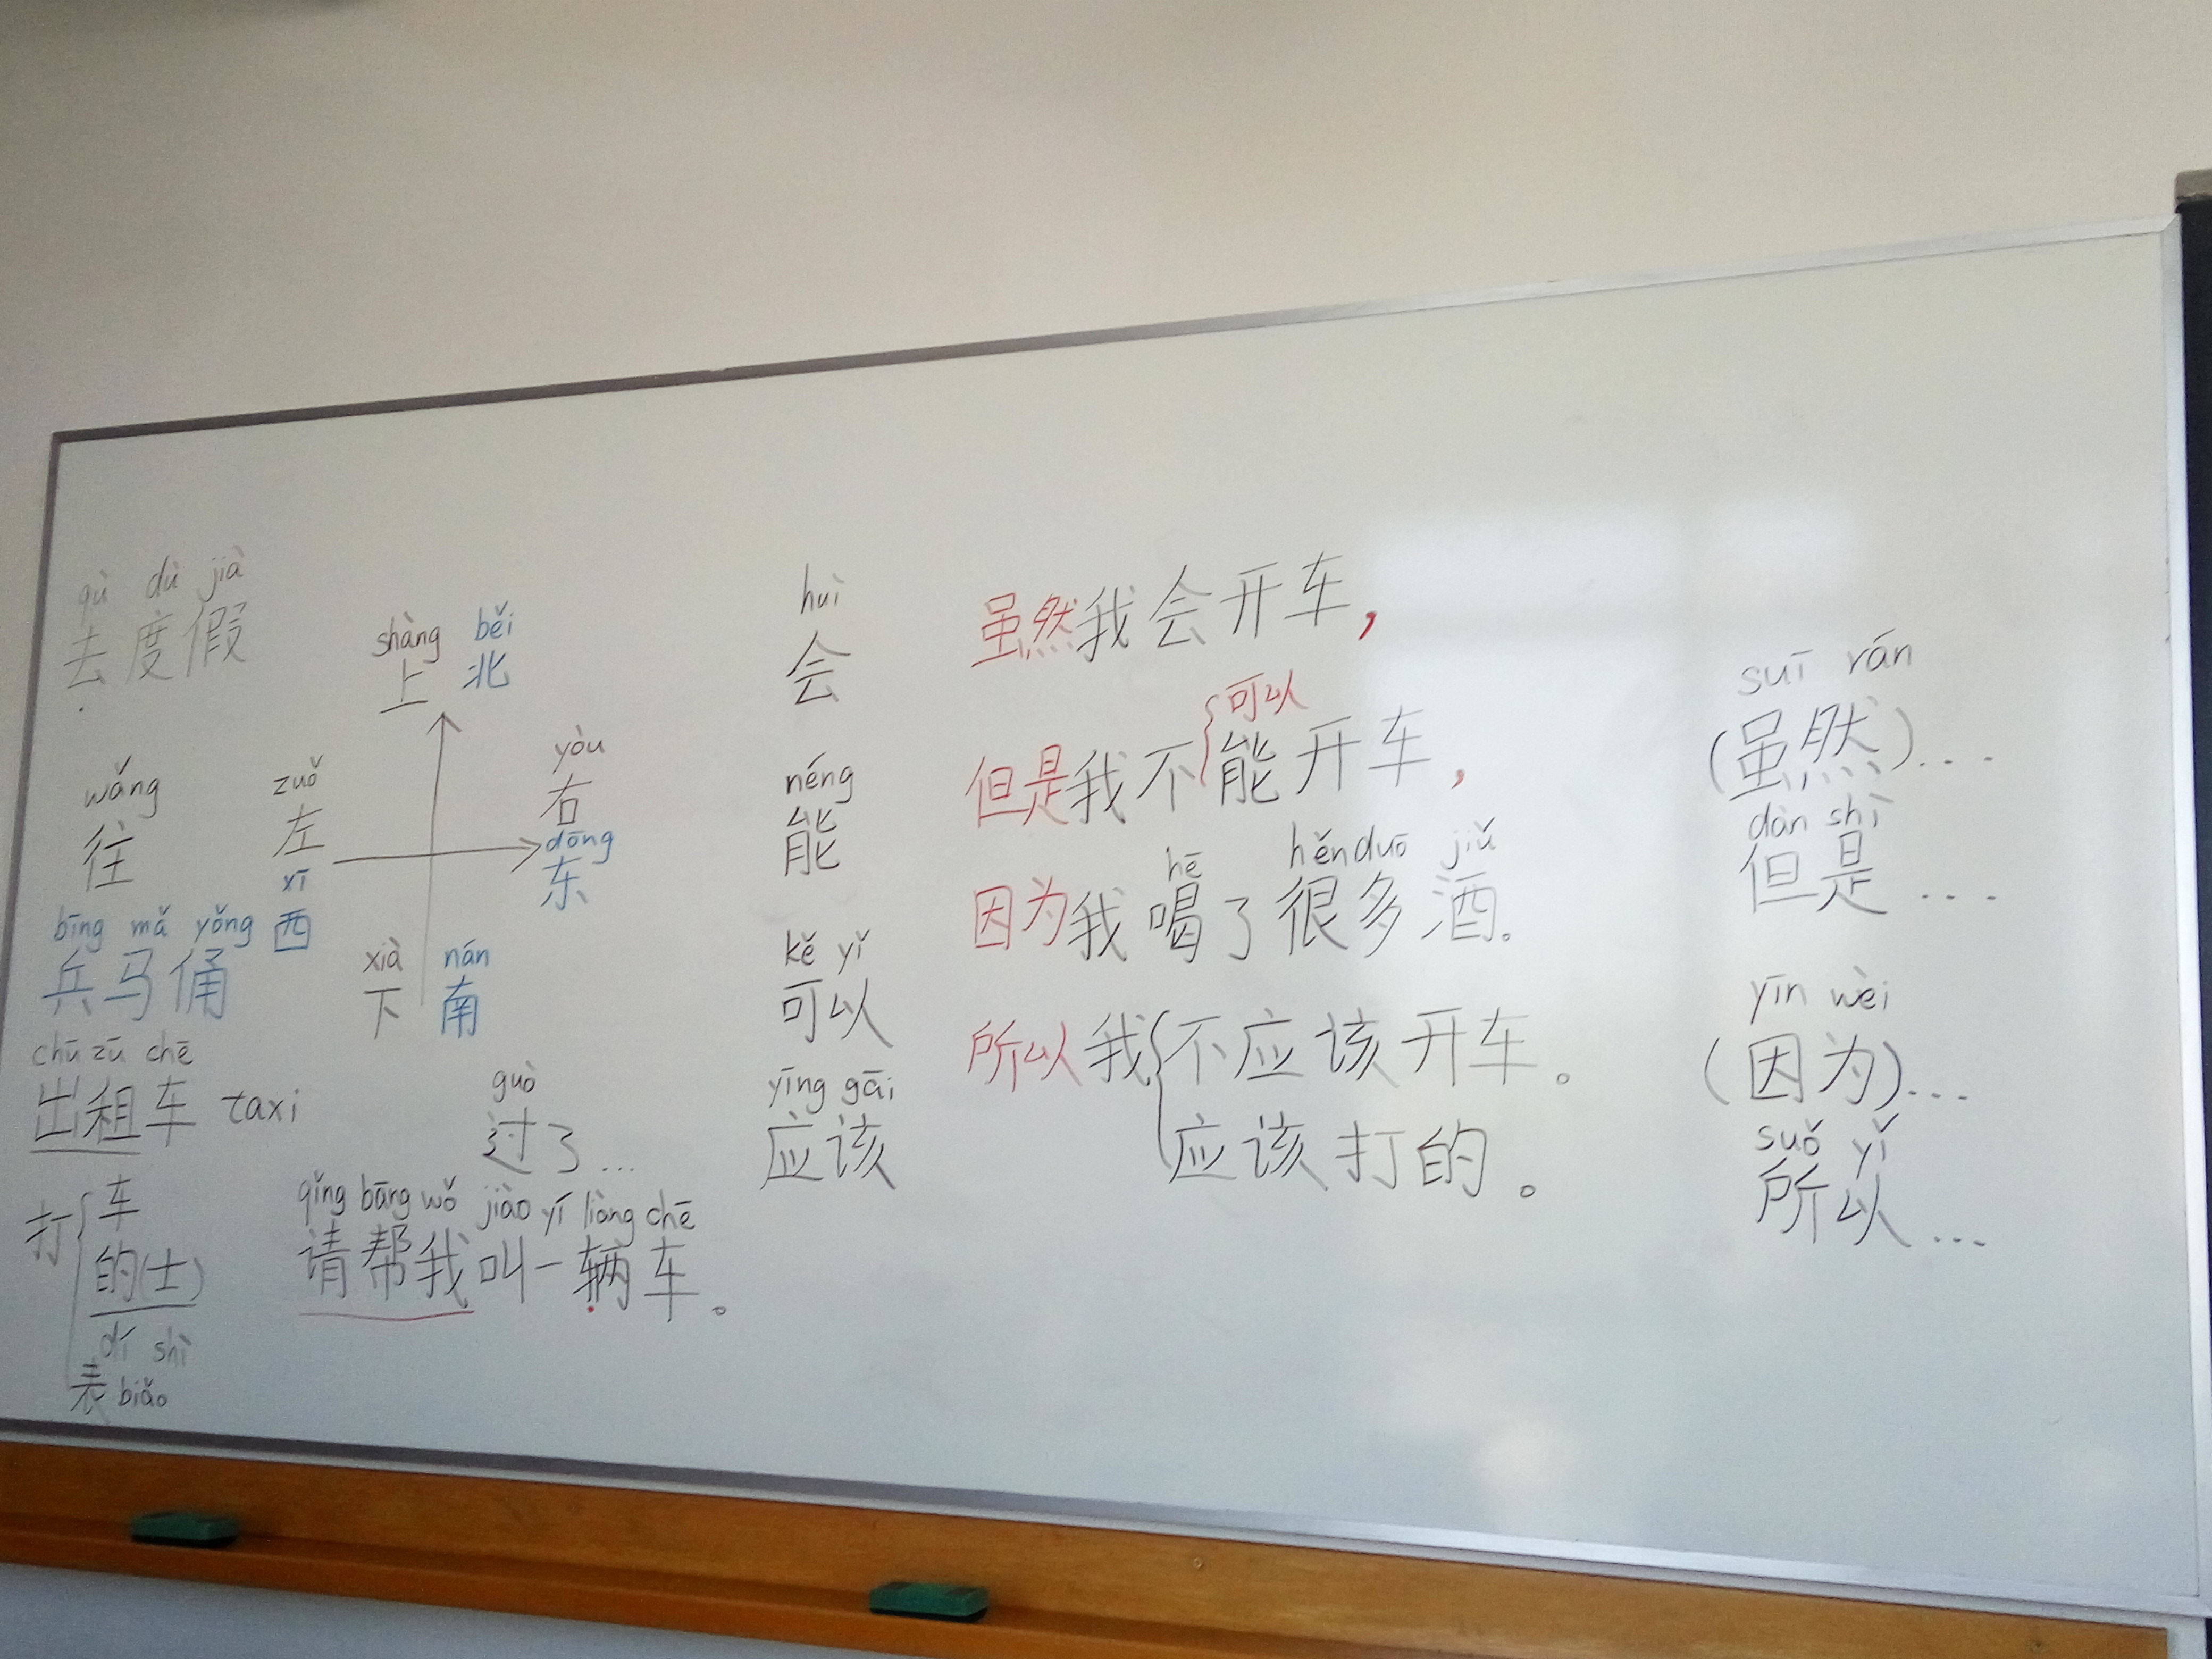 qù dù jià
去度假
wǎng
往
bīng mǎ yǒng
兵马俑
chū zū chē
出租车 taxi
打{车
的(士)
dí shì
表 biǎo
shàng běi
上 北
zuǒ
左
xī
西
yòu
右
dōng
东
xià nán
下 南
guò
过了...
qǐng bāng wǒ jiào yí liàng chē
请帮我叫一辆车。
huì
会
néng
能
kě yǐ
可以
yīng gāi
应该
虽然我会开车,
可以
但是我不{能开车,
hē hěn duō jiǔ
因为我喝了很多酒。
所以我{不应该开车。
应该打的。
suī rán
(虽然)...
dàn shì
但是...
yīn wèi
(因为)...
suǒ yǐ
所以...